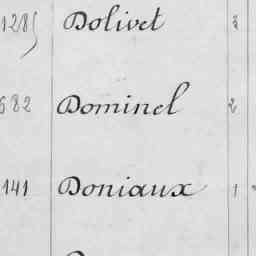 1285 Dolivet 3
682 Dominel 2
141 Doniaux 1